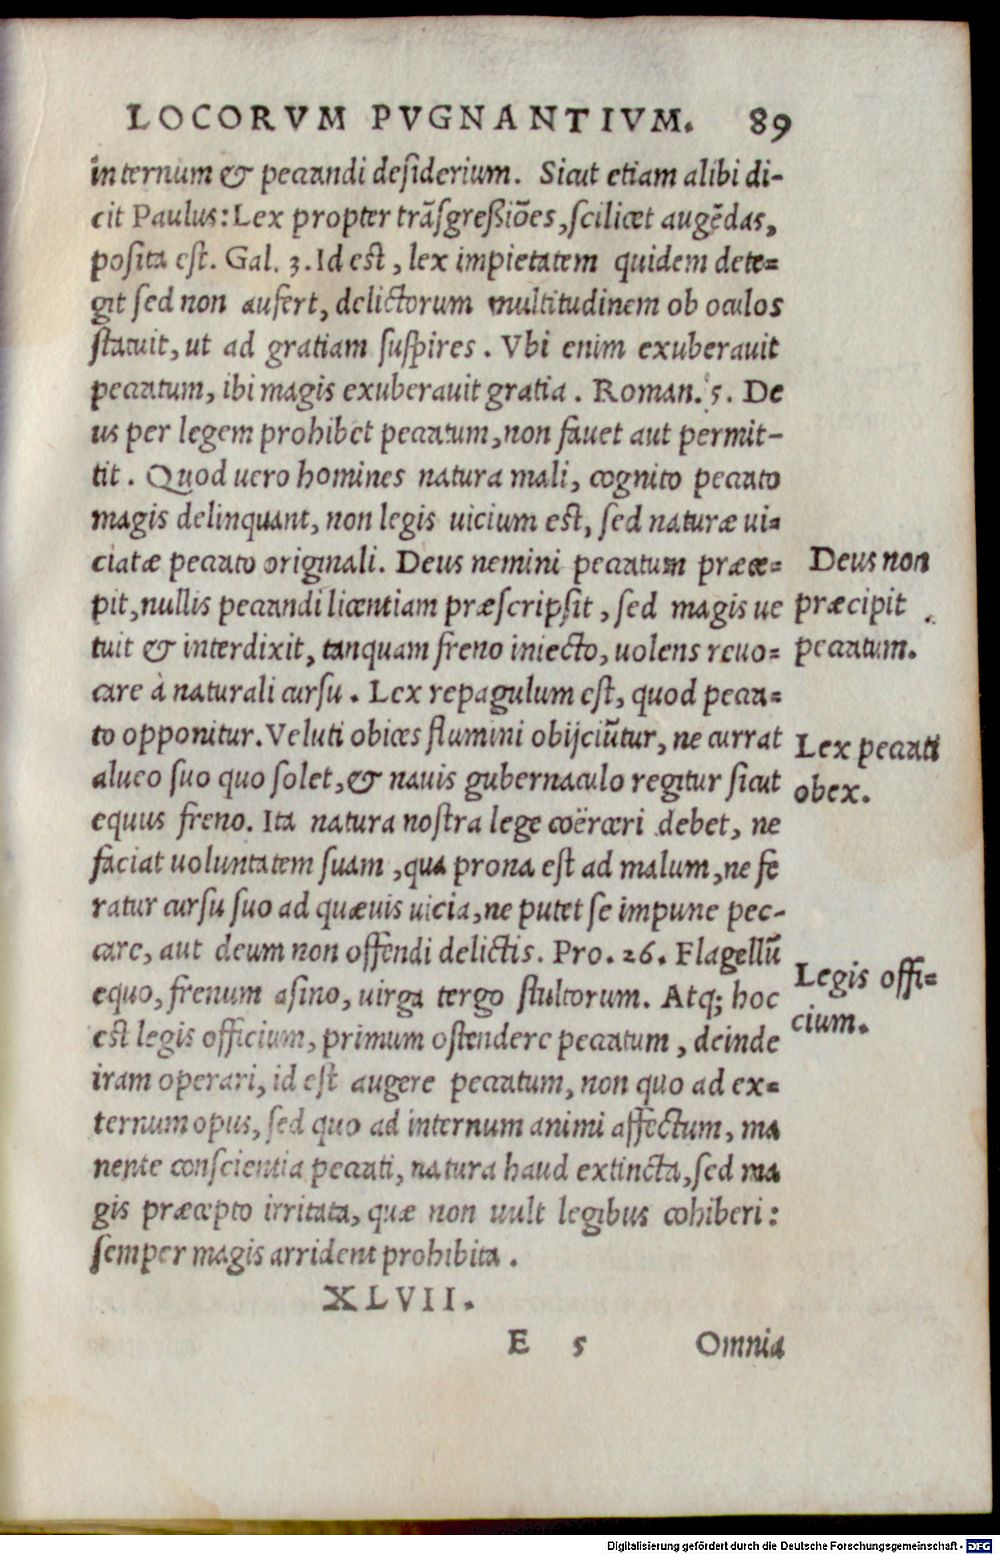 LOCORVM PVGNANTIVM. 89
internum & peccandi desiderium. Sicut etiam alibi di-
cit Paulus: Lex propter trãsgreßiões, scilicet augẽdas,
posita est. Gal. 3. Id est, lex impietatem quidem dete=
git sed non aufert, delictorum multitudinem ob oculos
statuit, ut ad gratiam suspires. Vbi enim exuberauit
peccatum, ibi magis exuberauit gratia. Roman. 5. De
us per legem prohibet peccatum, non fauet aut permit-
tit. Quod uero homines natura mali, cognito peccato
magis delinquant, non legis uicium est, sed naturæ ui=
ciatæ peccato originali. Deus nemini peccatum præce=
pit, nullis peccandi licentiam præscripsit, sed magis ue
tuit & interdixit, tanquam freno iniecto, uolens reuo=
care à naturali cursu. Lex repagulum est, quod pecca=
to opponitur. Veluti obices flumini obijciũtur, ne currat
alueo suo quo solet, & nauis gubernaculo regitur sicut
equus freno. Ita natura nostra lege coërceri debet, ne
faciat uoluntatem suam, qua prona est ad malum, ne fe
ratur cursu suo ad quæuis uicia, ne putet se impune pec-
care, aut deum non offendi delictis. Pro. 26. Flagellũ
equo, frenum asino, uirga tergo stultorum. Atq; hoc
est legis officium, primum ostendere peccatum, deinde
iram operari, id est augere peccatum, non quo ad ex=
ternum opus, sed quo ad internum animi affectum, ma
nente conscientia peccati, natura haud extincta, sed ma
gis præcepto irritata, quæ non uult legibus cohiberi:
semper magis arrident prohibita.
XLVII.
E 5 Omnia
Deus non
præcipit
peccatum.
Lex peccati
obex.
Legis offi=
cium.
Digitalisierung gefördert durch die Deutsche Forschungsgemeinschaft - DFG